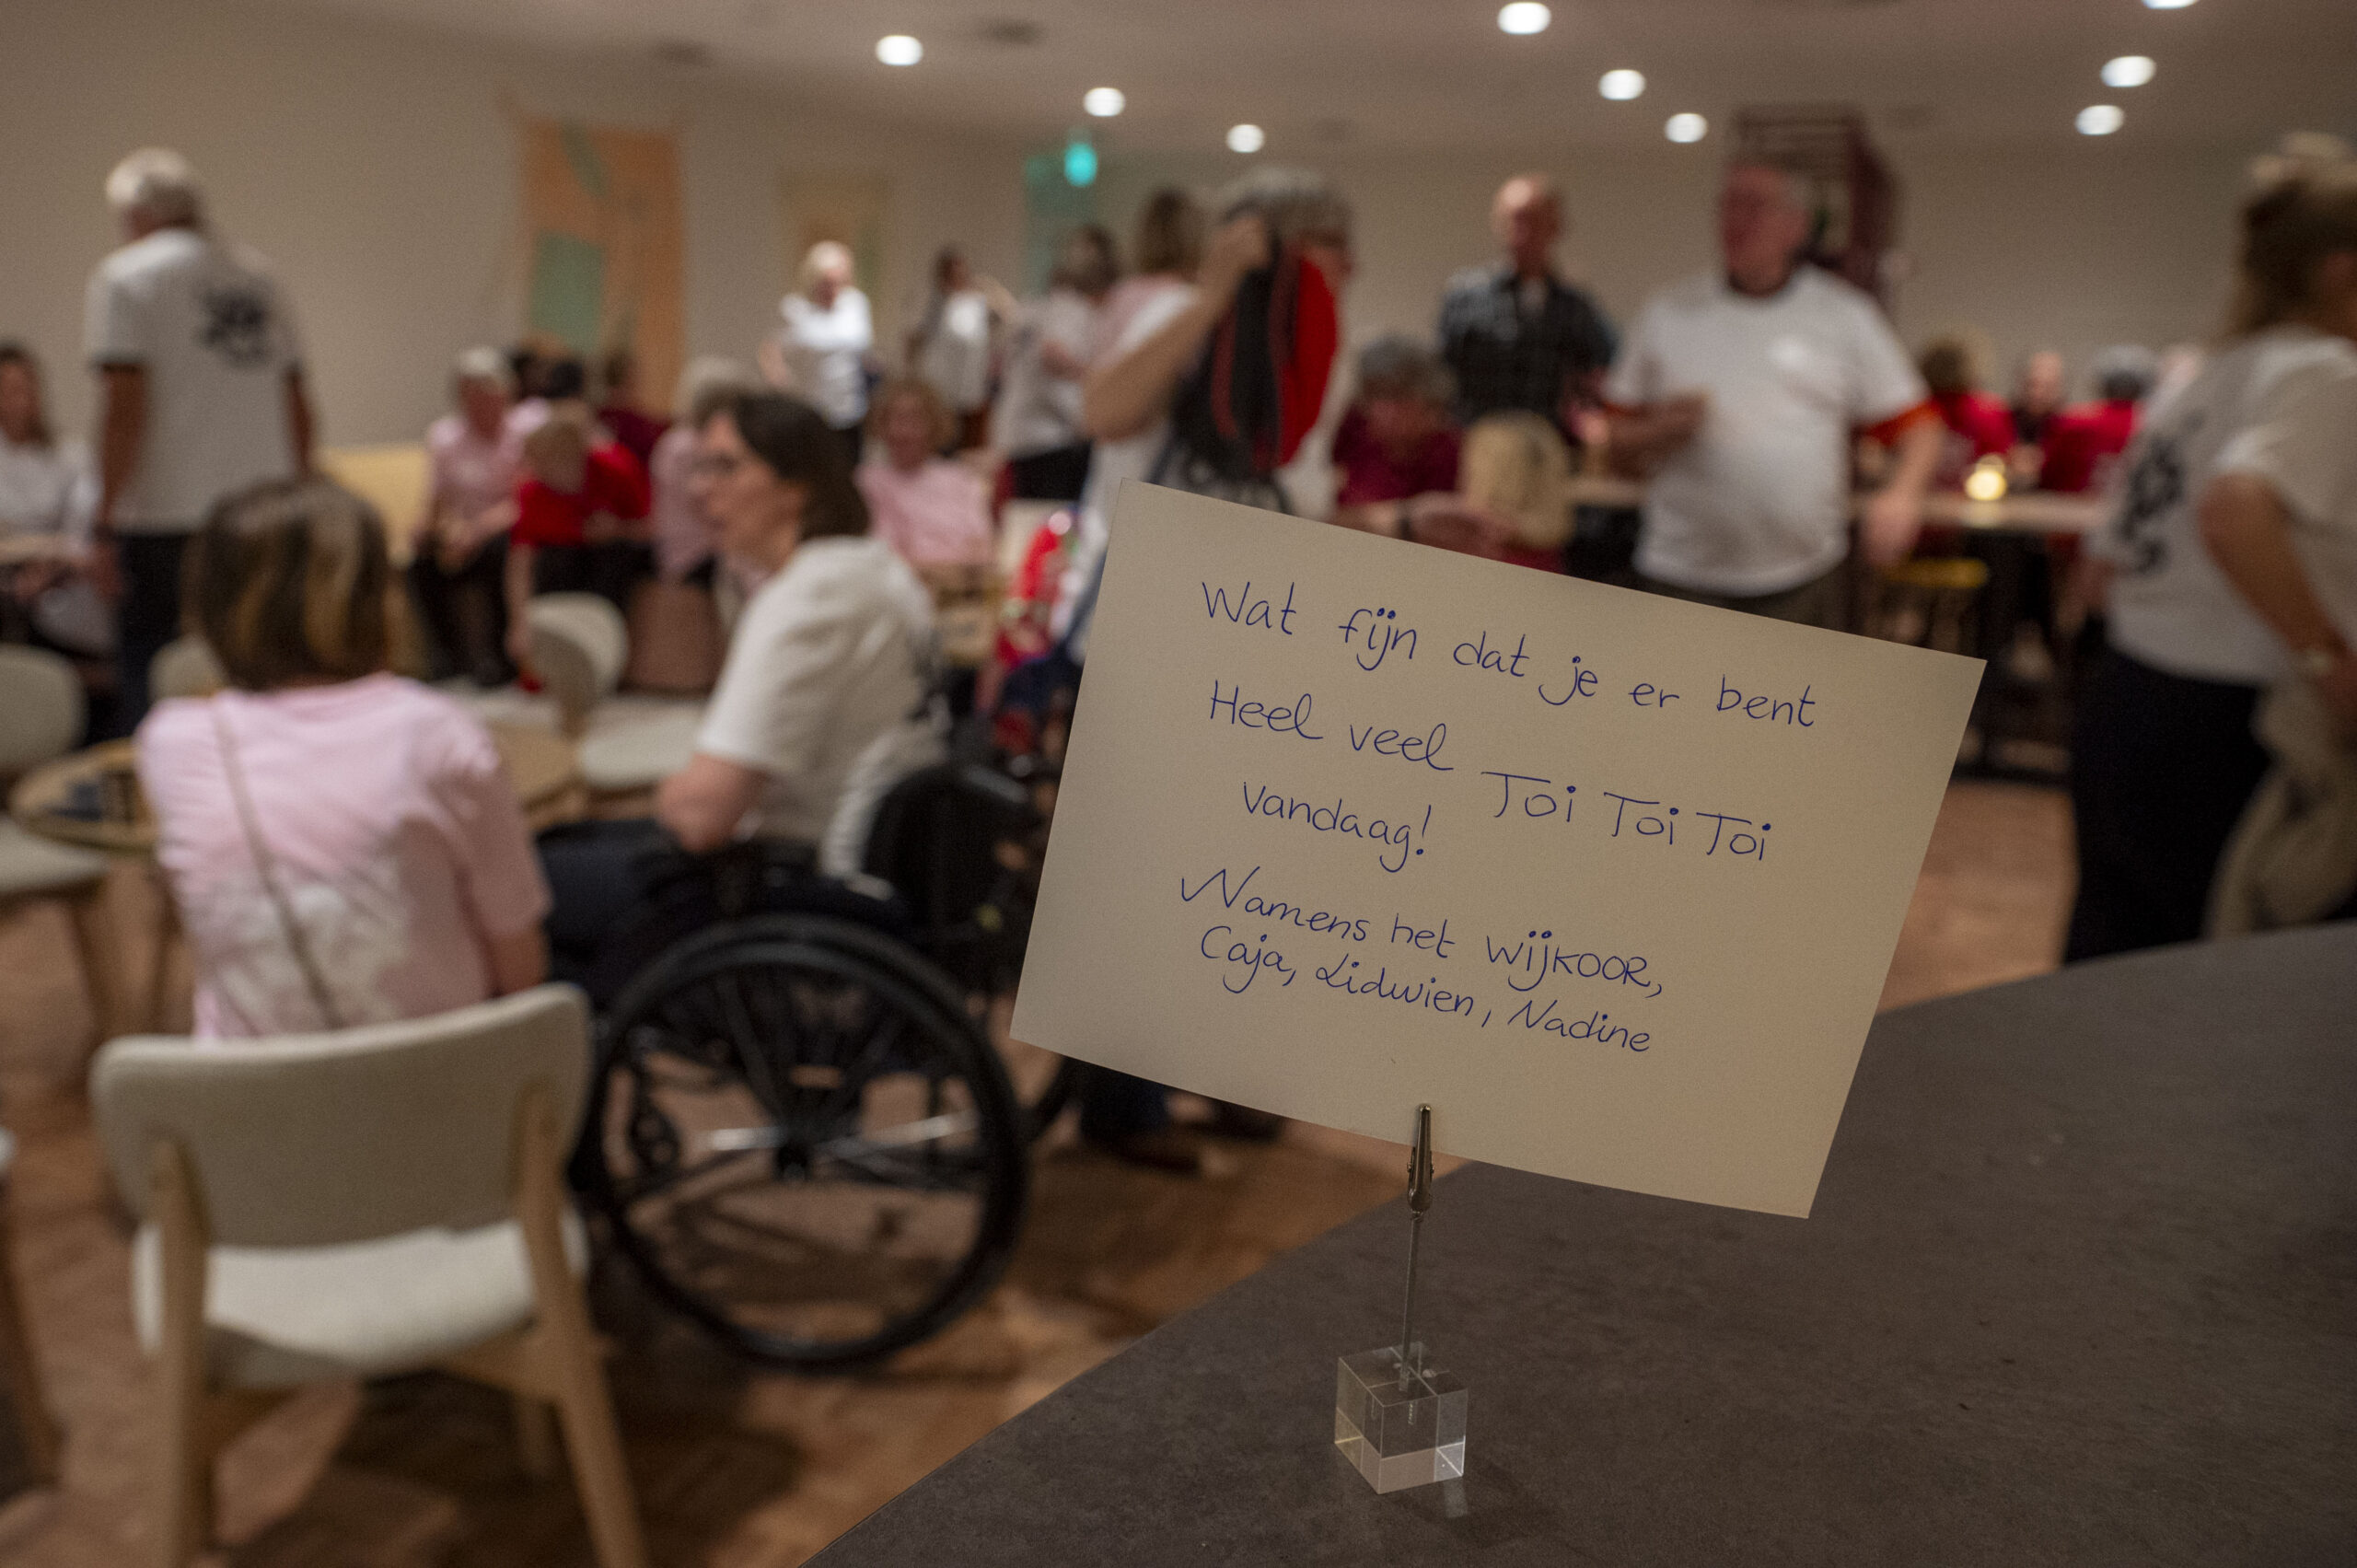 Wat fijn dat je er bent
Heel veel Toi Toi Toi
vandaag!
Namens het wijkoor,
Caja, Lidwien, Nadine